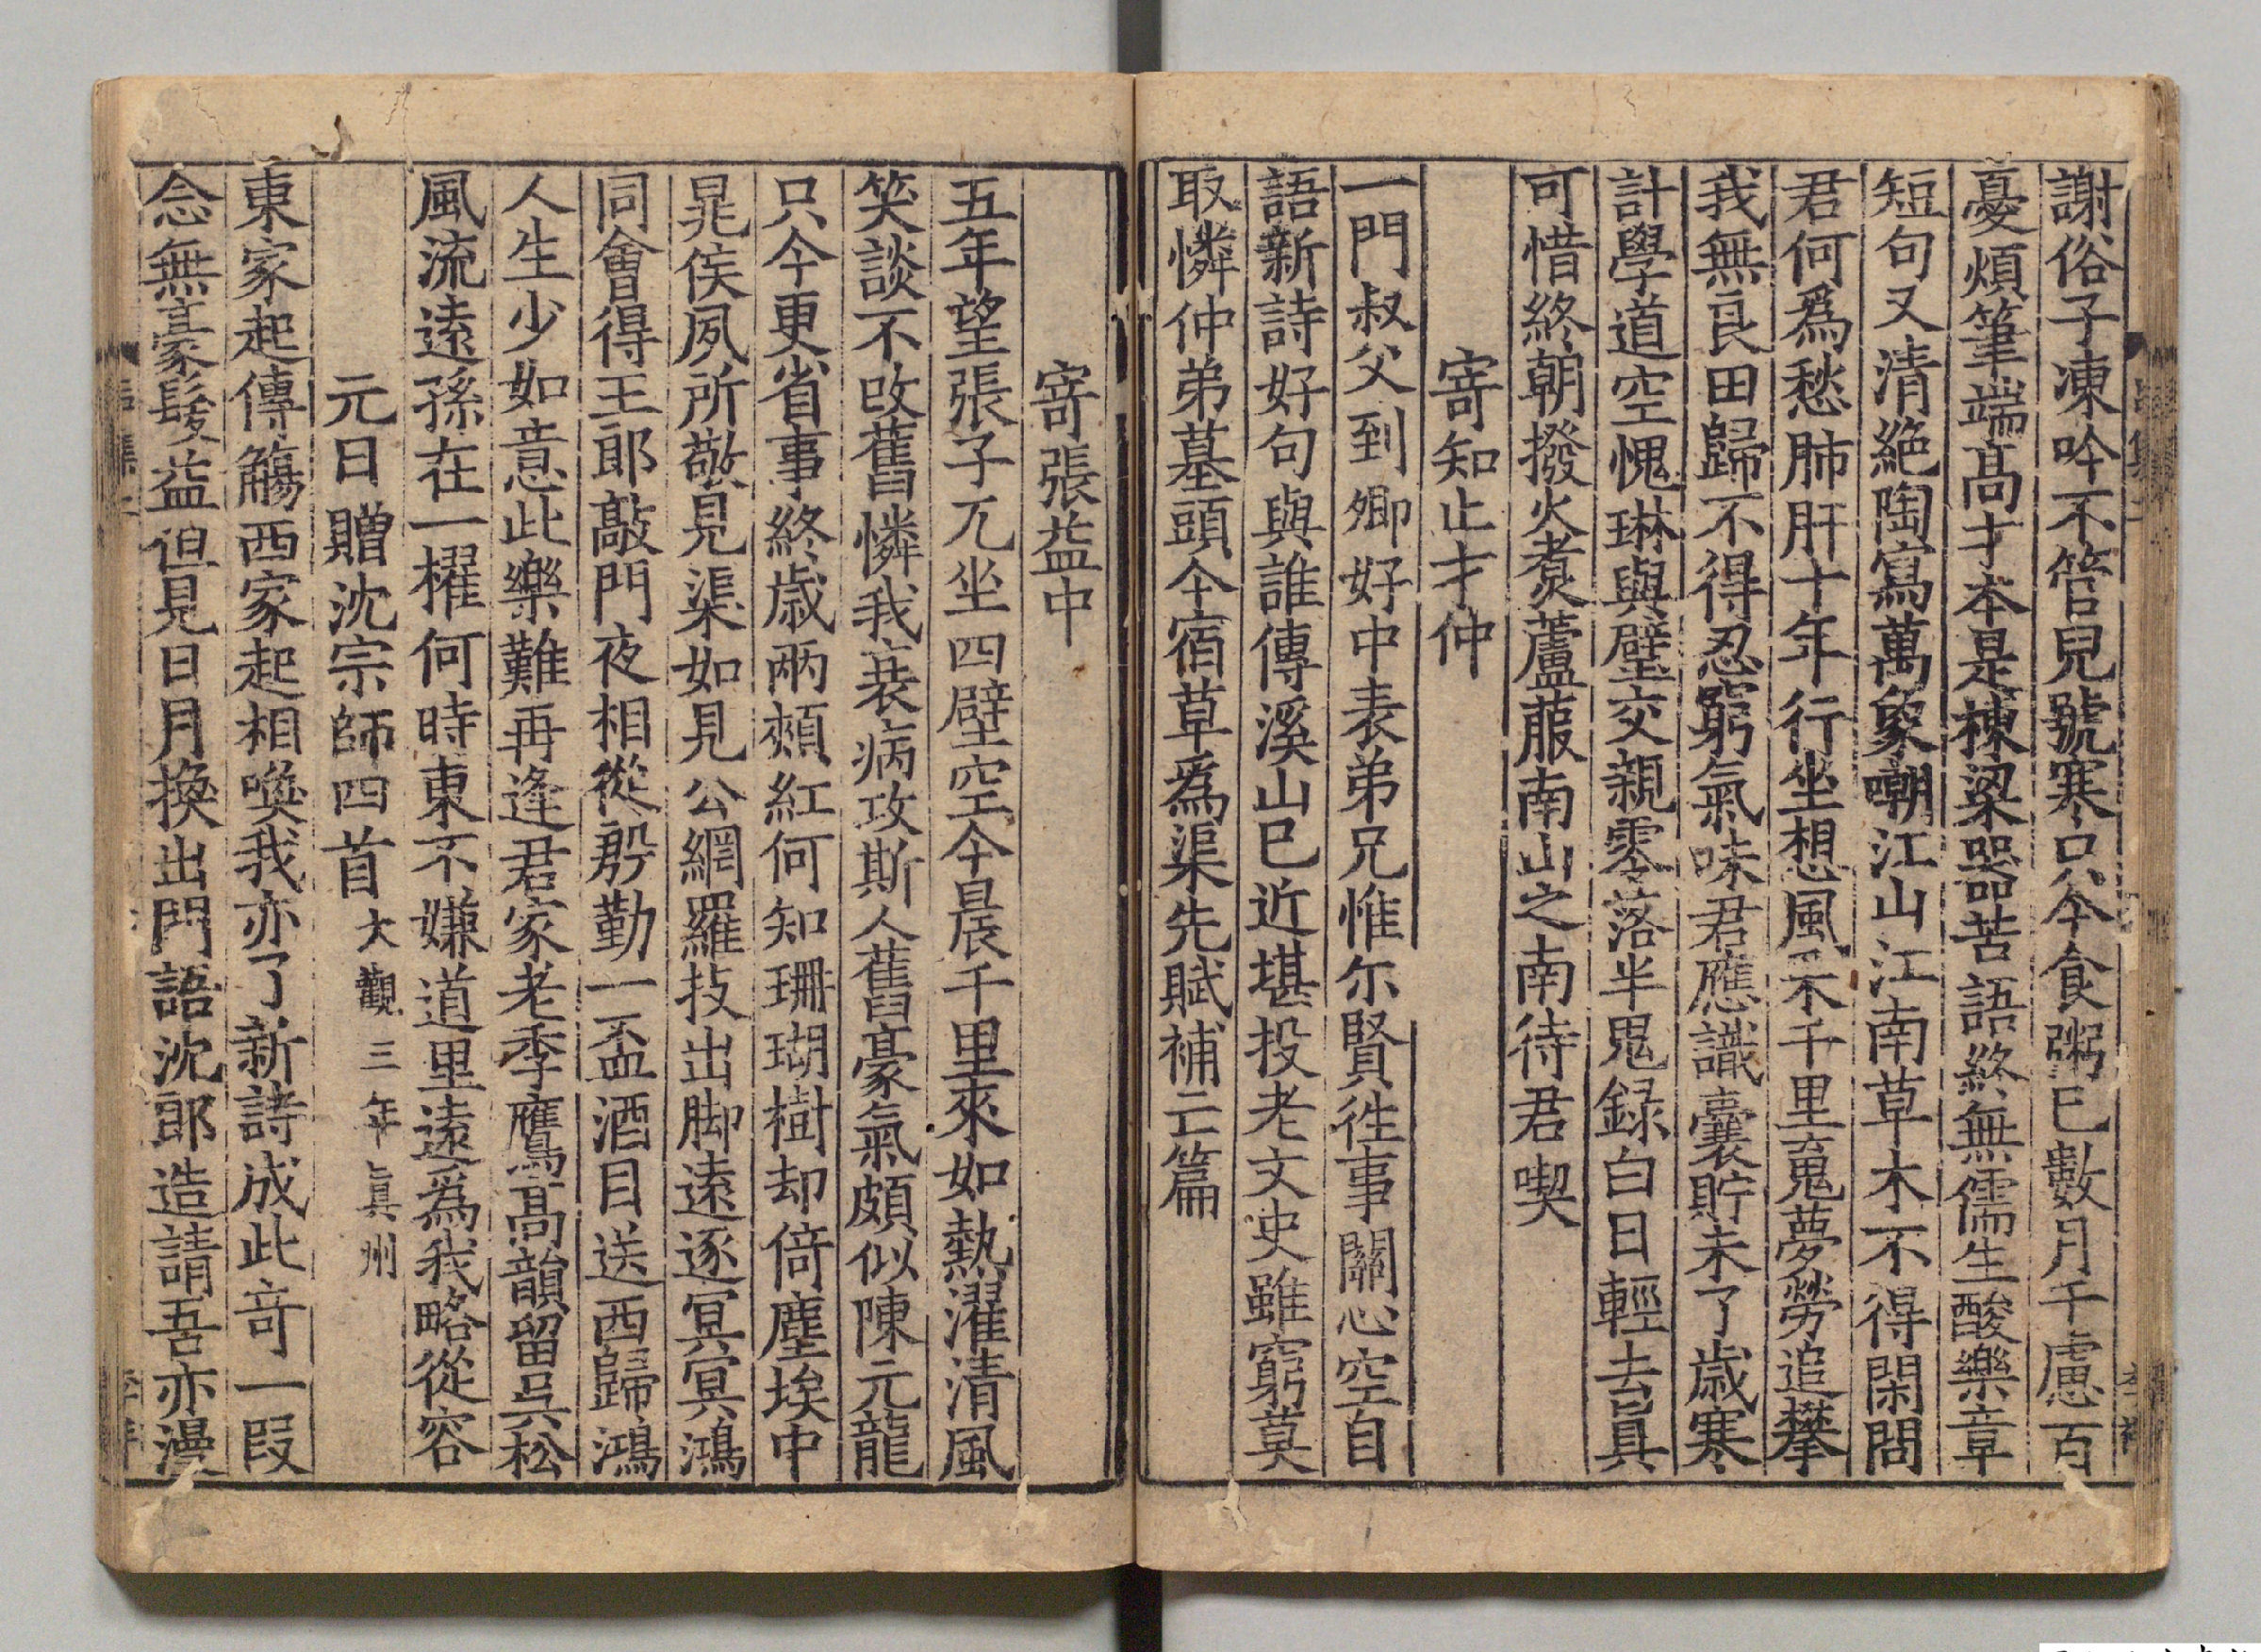 謝俗子凍吟不管兒號寒只今食粥已數月千慮百
憂煩筆端高才本是棟梁器苦語終無儒生酸樂章
短句又清絶陶寫萬象嘲江山江南草木不得閑問
君何爲愁肺肝十年行坐想風采千里寬夢勞追攀
我無良田歸不得忍窮氣味君應識囊貯未了歲寒
計學道空愧琳與璧交親零落半鬼録白日輕去眞
可惜終朝撥火煮蘆菔南山之南待君喫
寄知止才仲
一門叔父到卿好中表弟兄惟尓賢徃事關心空自
語新詩好句與誰傳溪山已近堪投老文史雖窮莫
取憐仲弟墓頭今宿草爲渠先賦補亡篇
寄張益中
五年望張子兀坐四壁空今晨千里來如熱濯清風
笑談不改舊憐我衰病攻斯人舊豪氣頗似陳元龍
只今更省事終歲兩頰紅何知珊瑚樹却倚塵埃中
晁侯夙所敬見渠如見公網羅技出脚遠逐冥冥鴻
同會得王郎敲門夜相從殷勤一盃酒目送西歸鴻
人生少如意此樂難再逢君家老季鷹高韻留吳松
風流遠孫在一櫂何時東不嫌道里遠爲我略從容
元日贈沈宗師四首大觀三年眞州
東家起傳觴西家起相喚我亦了新詩成此竒一叚
念無豪髮益但見日月換出門語沈郎造請吾亦漫